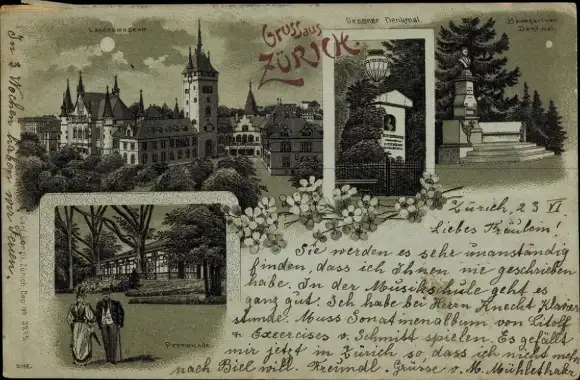 Landesmuseum
Gruss aus
ZÜRICH
Gessner Denkmal.
Baumgartner
Denkmal.
Promenade
2086.
In 3 Wochen haben wir Ferien.
Zürich, 23 VI
Liebes Fräulein!
Sie werden es sehr unanständig
finden, dass ich Ihnen nie geschrieben
habe. In der Musikschule geht es
ganz gut. Ich habe bei Herrn Knecht Klavier
stunde. Muss Sonatinenalbum von Litolf
& Exercises v. Schmitt spielen. Es gefällt
mir jetzt in Zürich so dass ich nicht mehr
nach Biel will. Freundl. Grüsse v. M. Mühlethaler